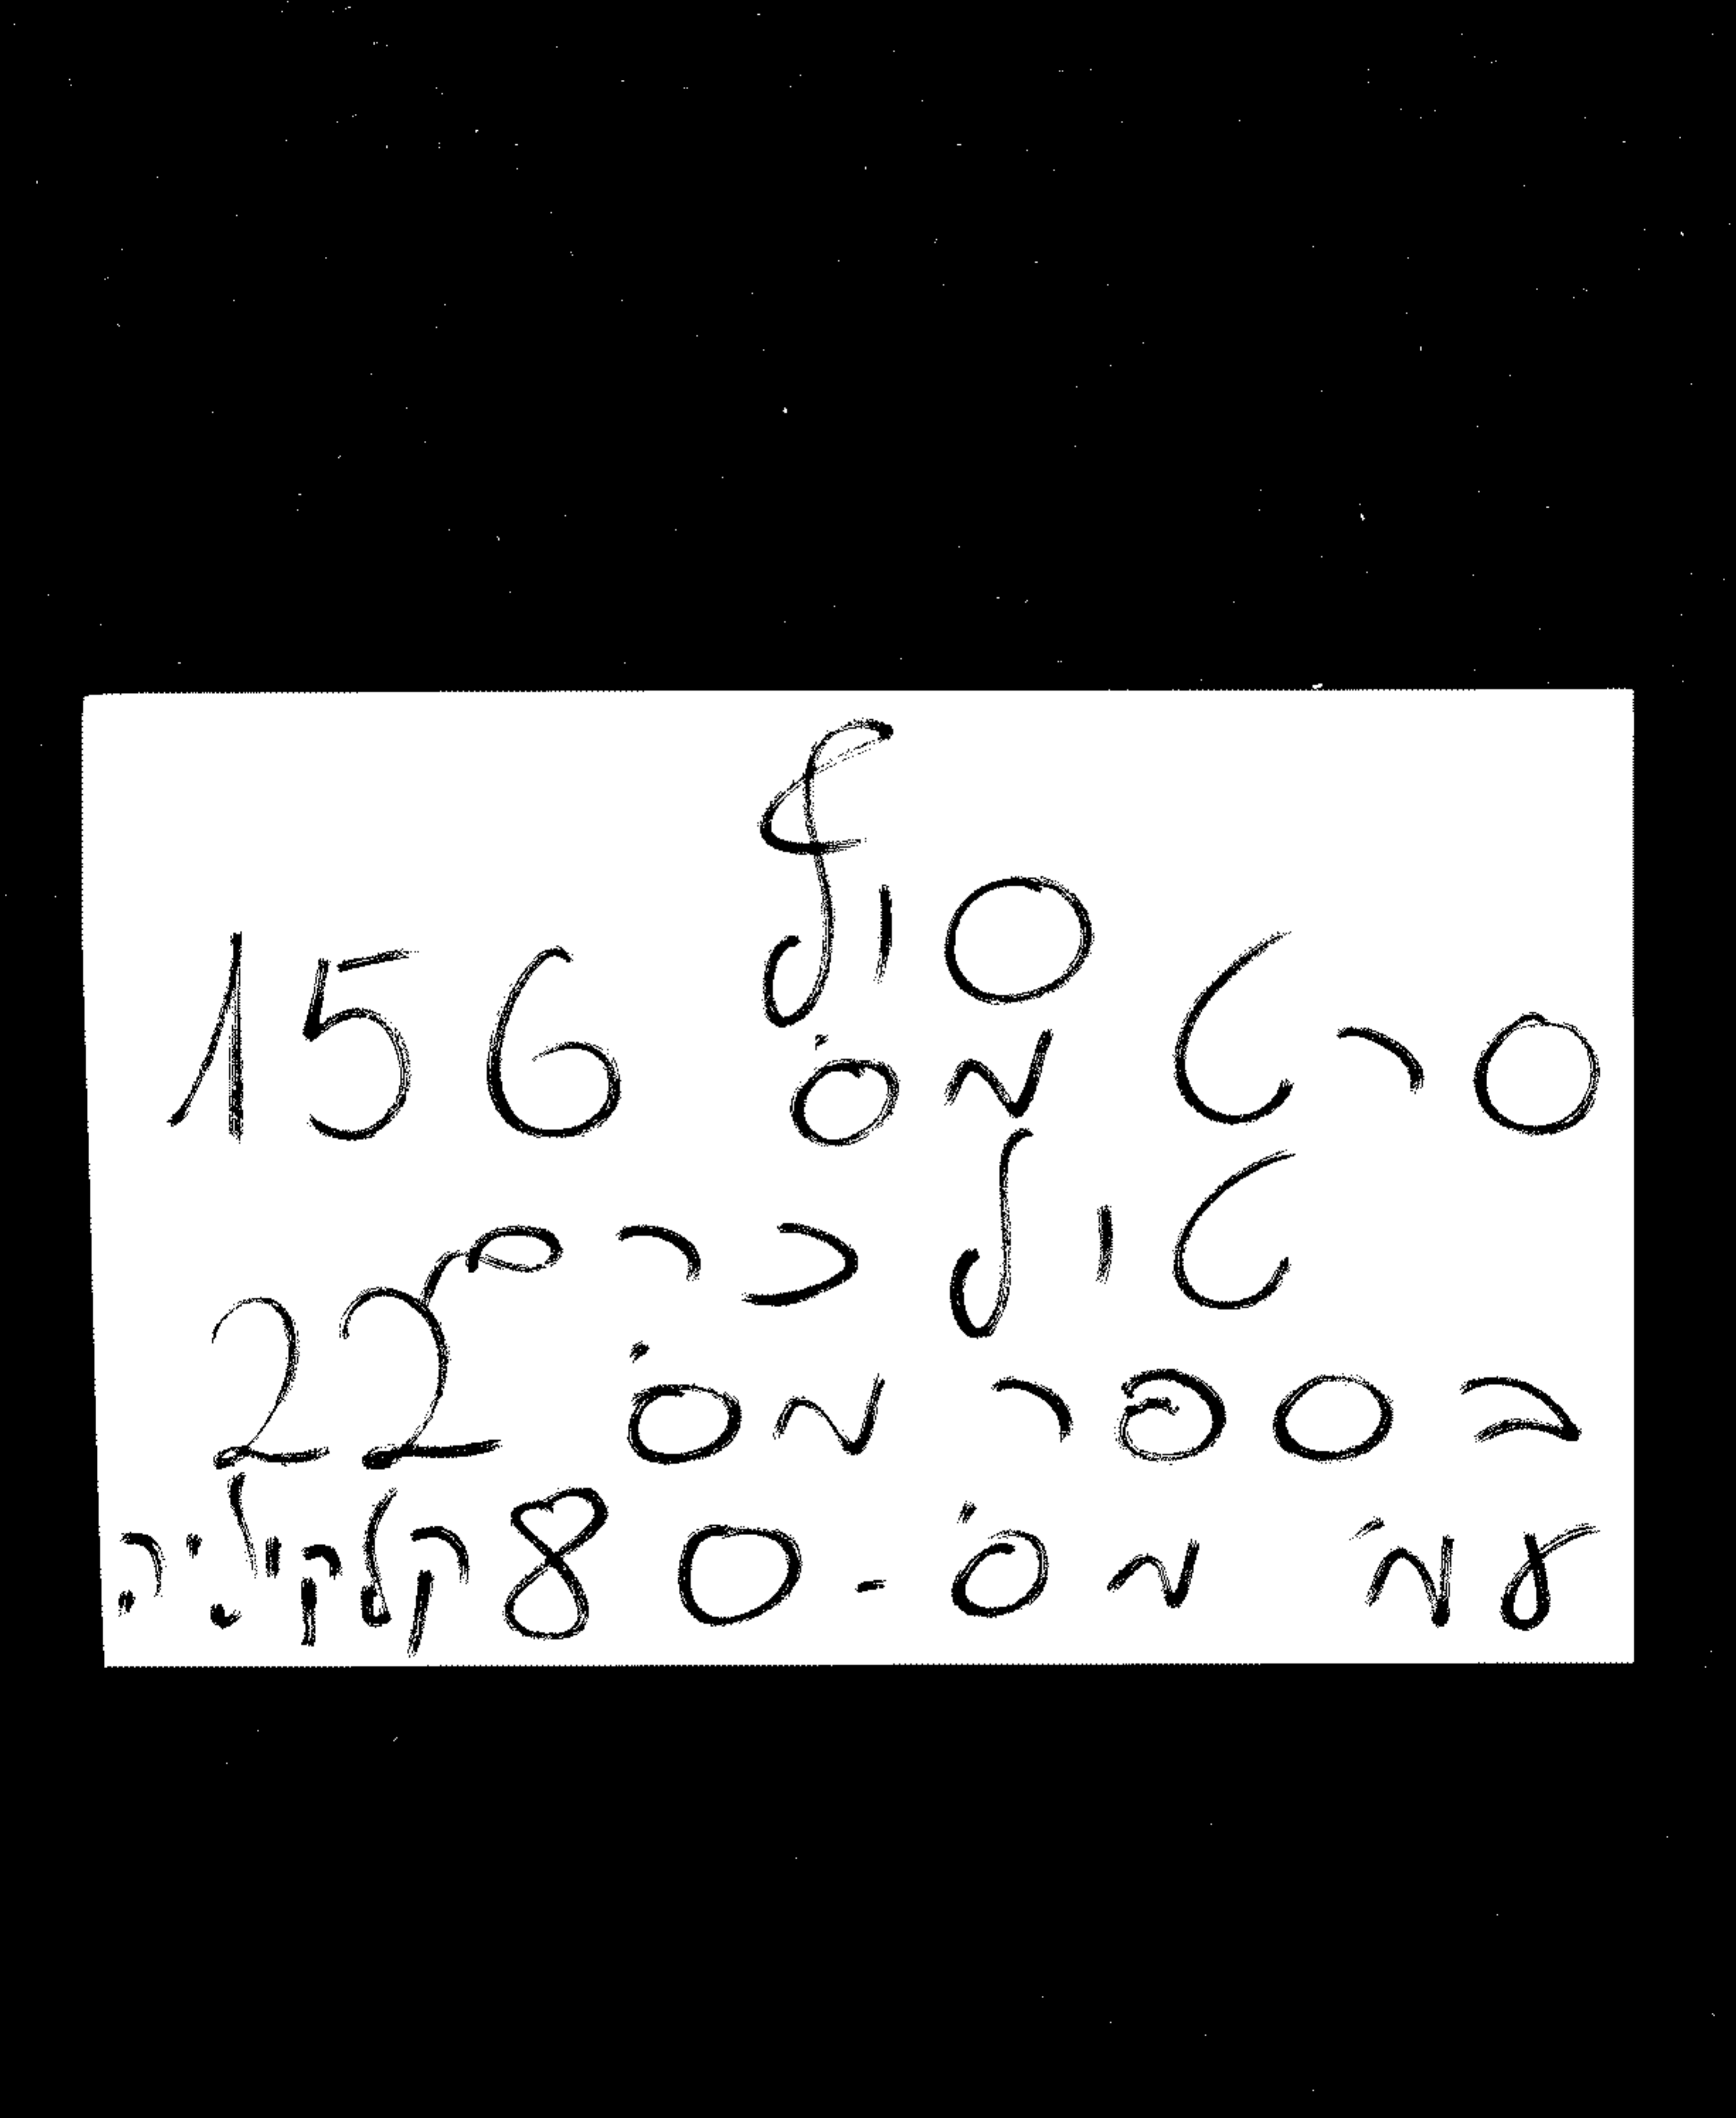 סוף
סרט מס' 156
טול כרם
בספר מס' 22
עמ' מס' - 80 קלקיליה